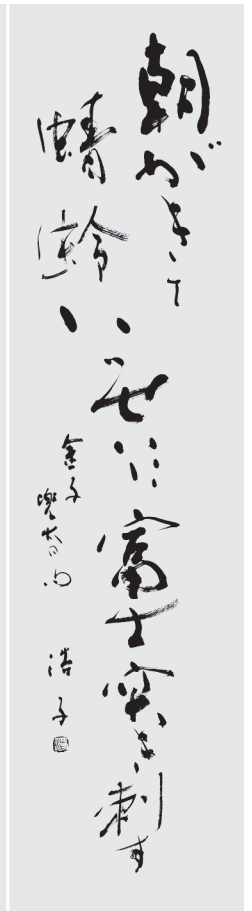 朝がきて
蜻蛉いっせいに富士突き刺す
金子兜太の句 浩子